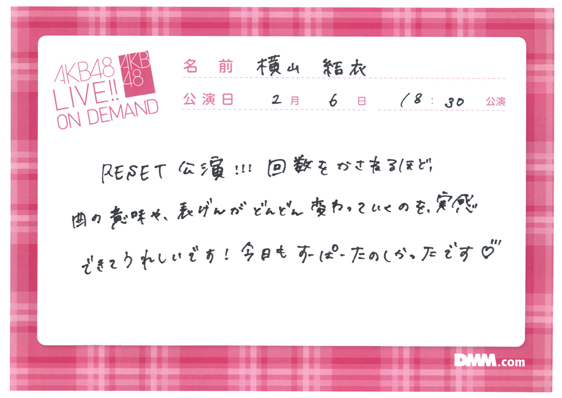 AKB48
LIVE!!
ON DEMAND
AKB
48
名前 横山 結衣
公演日 2月 6日 18:30 公演
RESET 公演!!! 回数をかさねるほど、
曲の意味や、表げんがどんどん変わっていくのを、実感
できてうれしいです!今日もすーぱーたのしかったです♡
DMM.com